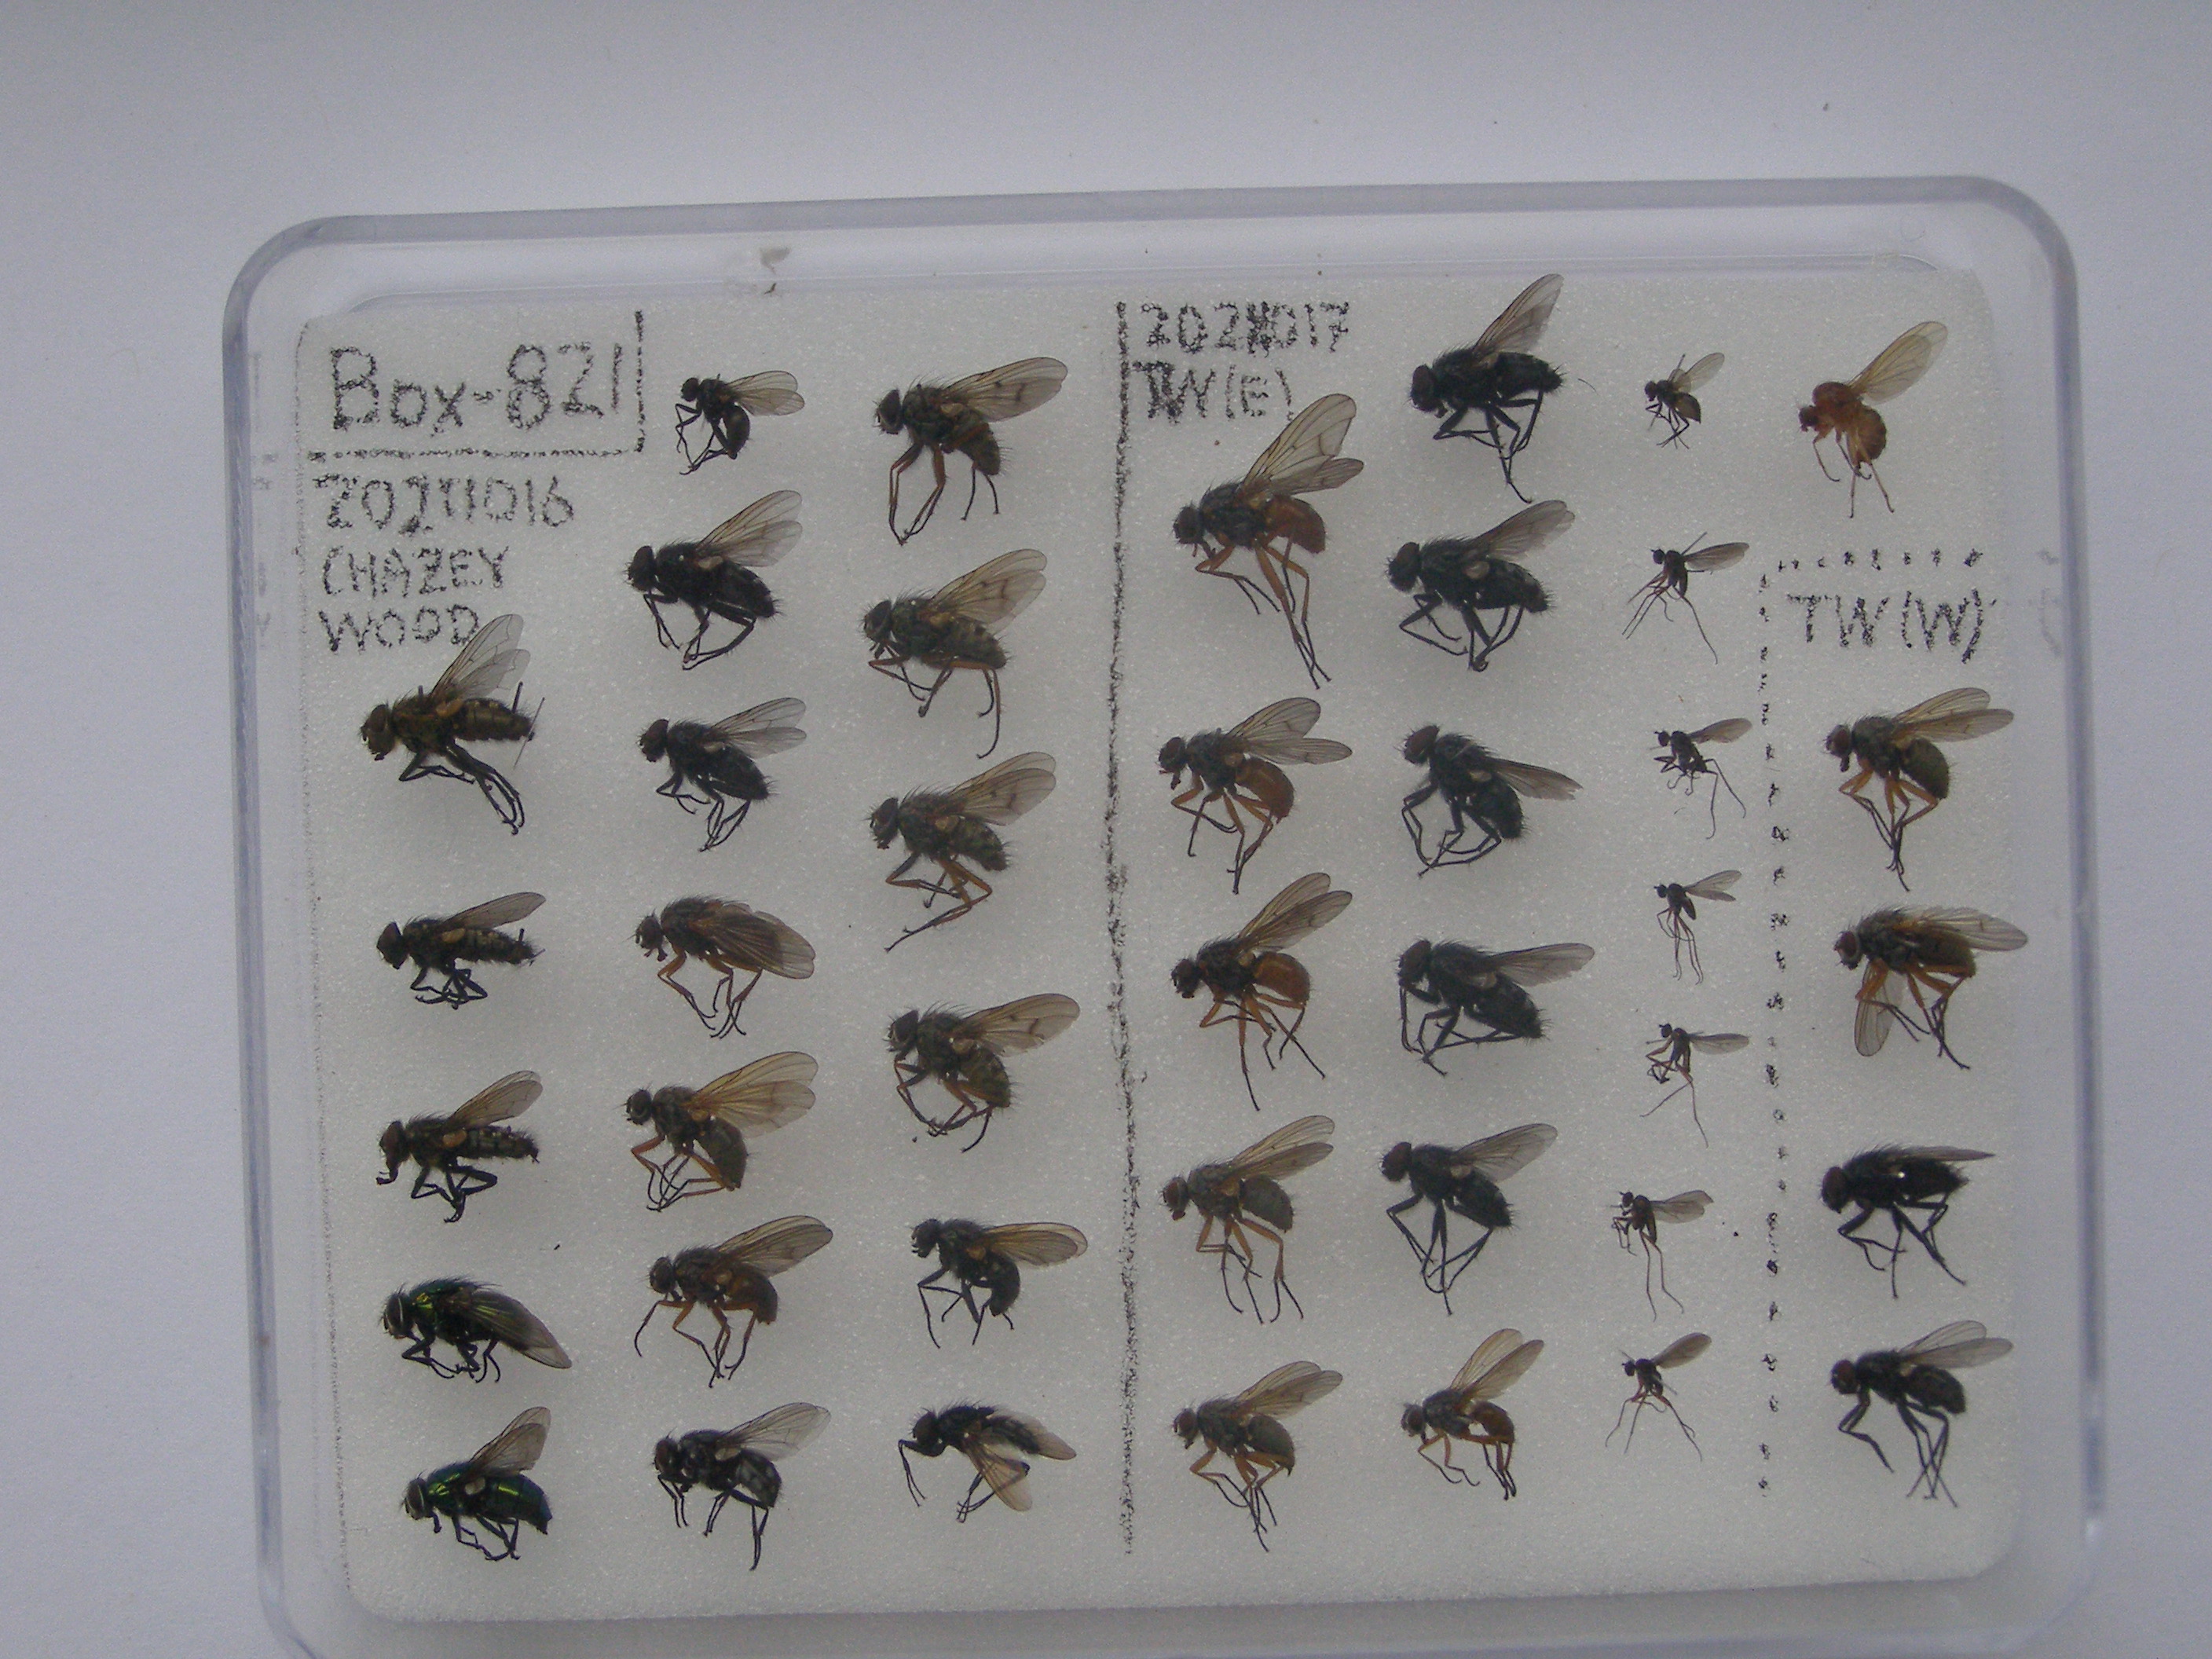 Box-821
20211016
CHAZEY
WOOD
20211017
TW(E)
TW(W)